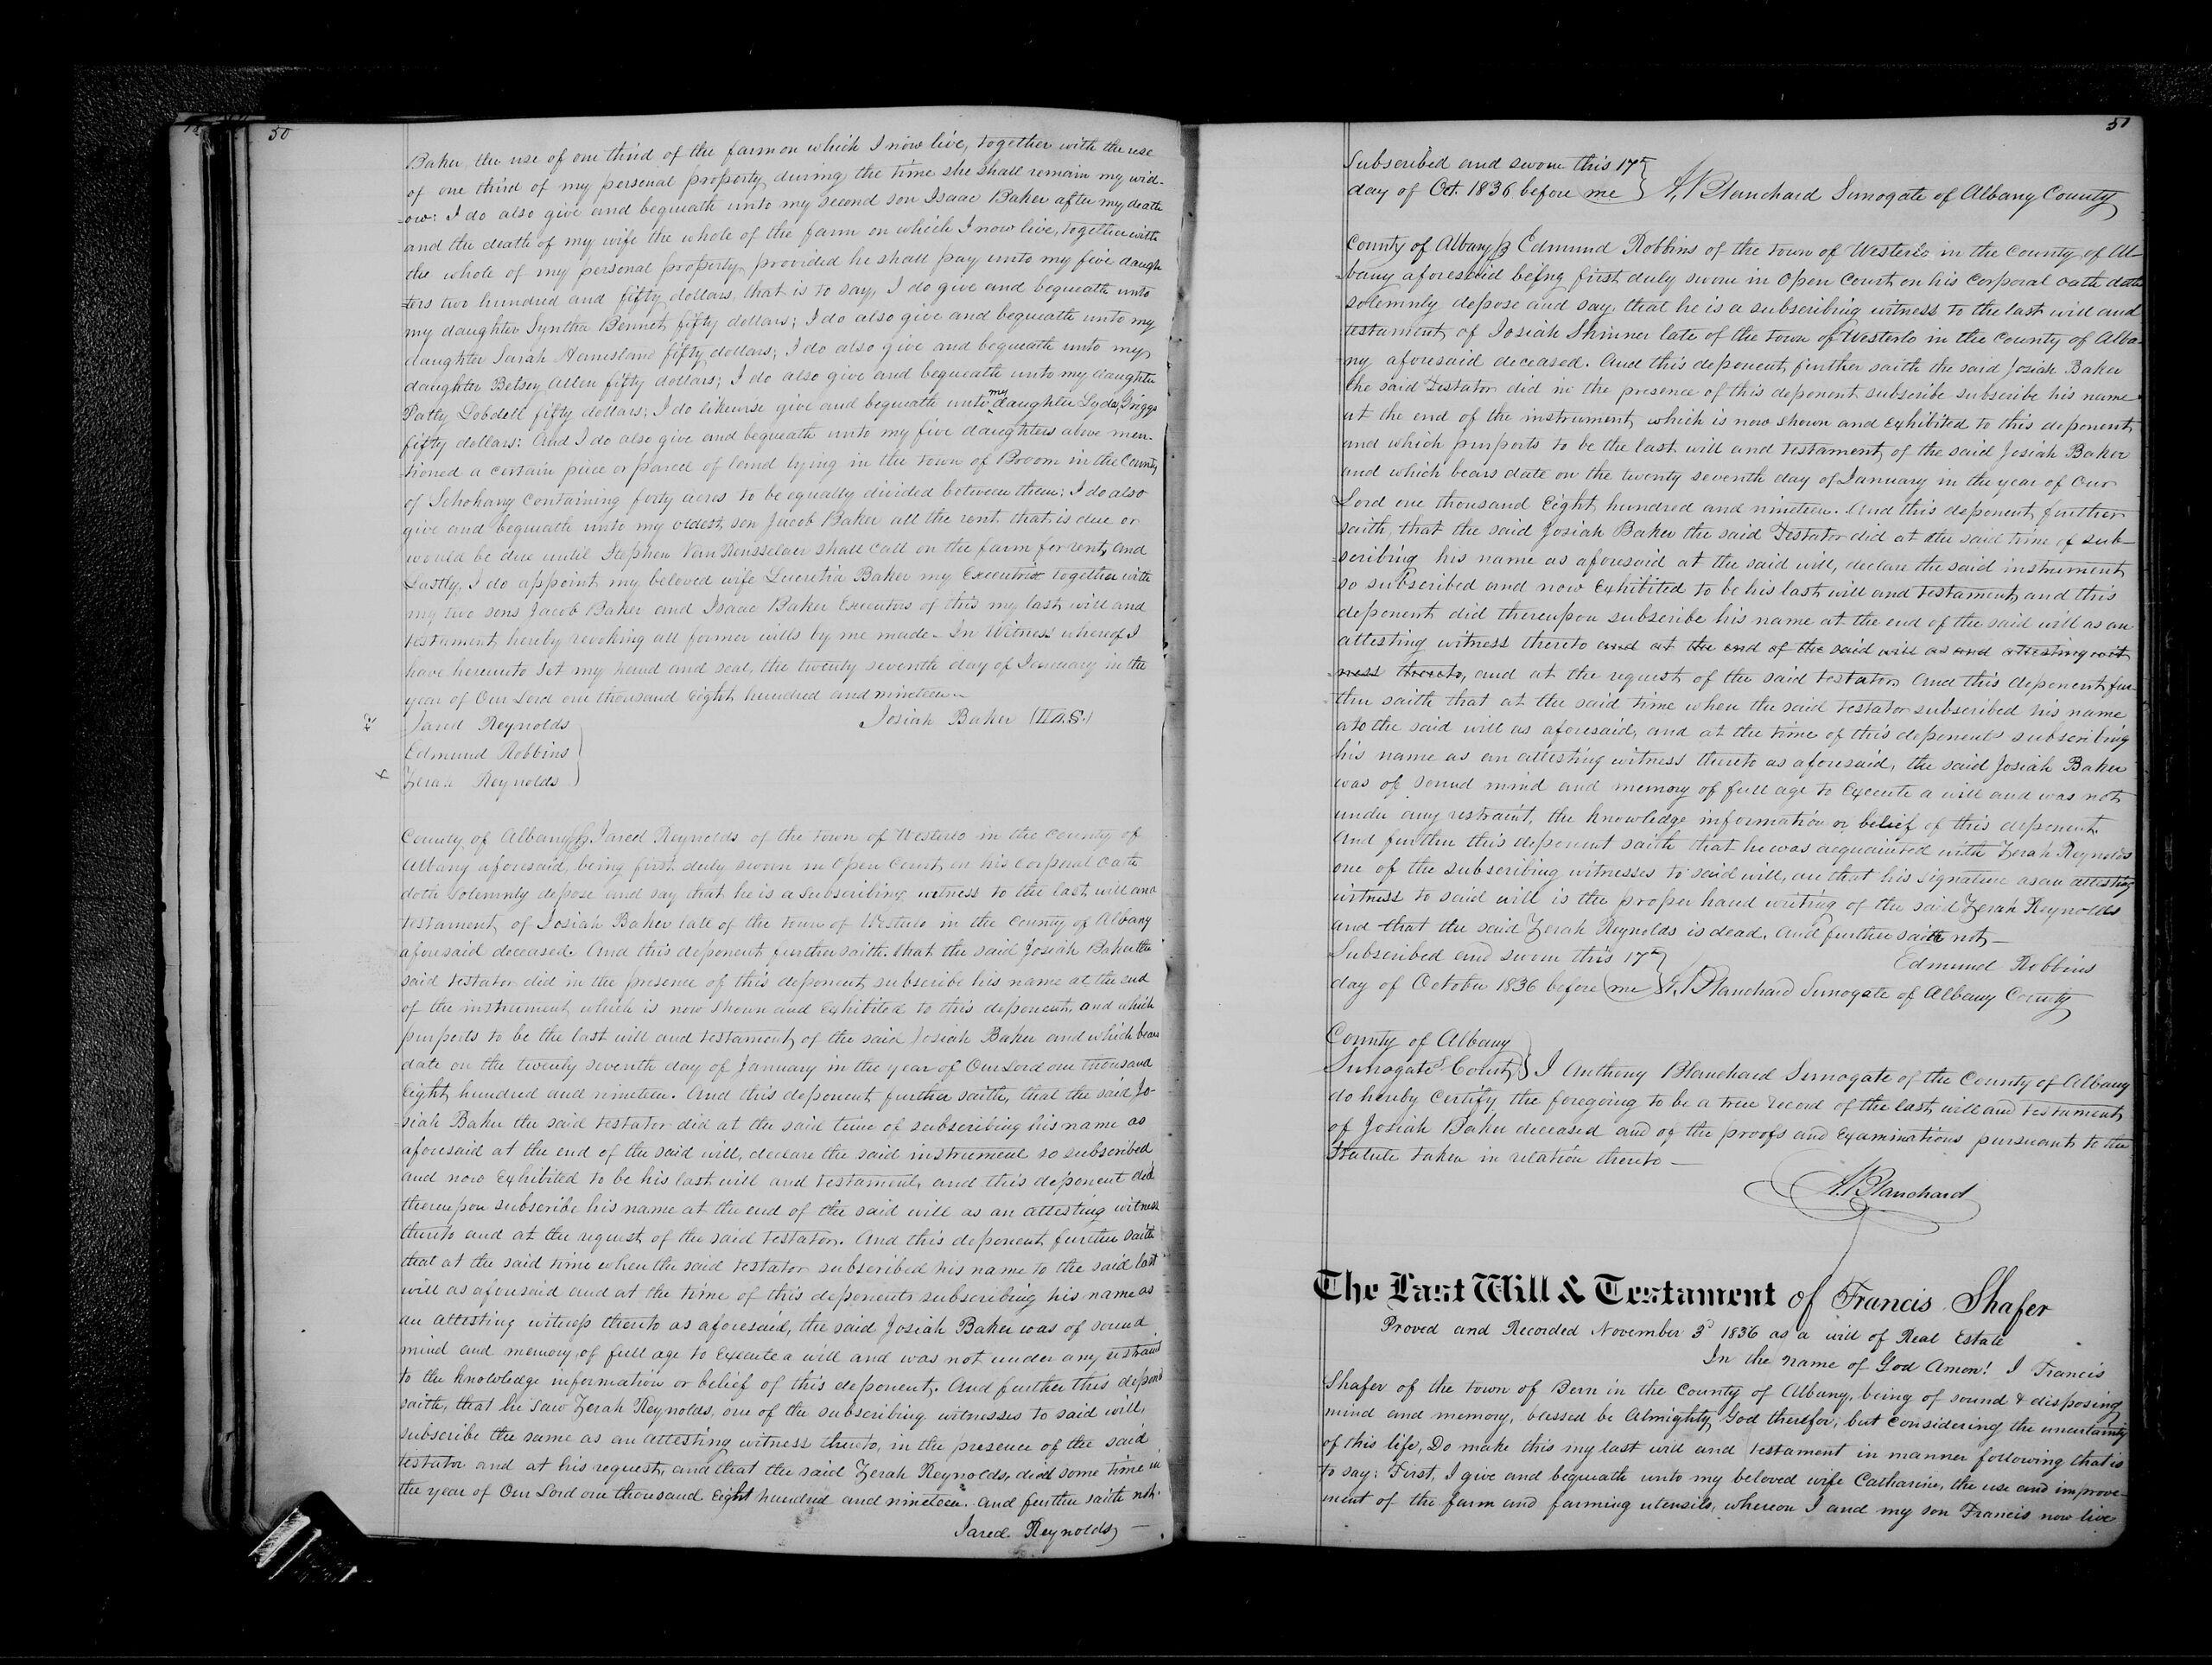 50
Baker, the use of one third of the farm on which I now live, together with the use
of one third of my personal property, during the time she shall remain my wid-
-ow: I do also give and bequeath unto my second son Isaac Baker after my death
and the death of my wife the whole of the farm on which I now live, together with
the whole of my personal property, provided he shall pay unto my five daugh
-ters two hundred and fifty dollars, that is to say, I do give and bequeath unto
my daughter Syntha Bennet fifty dollars; I do also give and bequeath unto my
daughter Sarah fifty dollars; I do also give and bequeath unto my
daughter Betsey Allen fifty dollars; I do also give and bequeath unto my daughter
Patty Lobdell fifty dollars; I do likewise give and bequeath unto my daughter Lyda Griggs
fifty dollars: And I do also give and bequeath unto my five daughters above men-
tioned a certain piece or parcel of land lying in the town of Broom in the County
of Schohary containing forty acres to be equally divided between them; I do also
give and bequeath unto my oldest son Jacob Baker all the rent that is due or
would be due until Stephen Van Rensselaer shall call on the farm for rent, and
Lastly, I do appoint my beloved wife Lucretia Baker my Executrix together with
my two sons Jacob Baker and Isaac Baker Executors of this my last will and
testament hereby revoking all former wills by me made - In Witness whereof I
have hereunto set my hand and seal, the twenty seventh day of January in the
year of Our Lord one thousand Eight hundred and nineteen
Jared Reynolds Josiah Baker (L.S.)
Edmund Robbins
Zerah Reynolds
County of Albany ss Jared Reynolds of the town of Westerlo in the county of
Albany aforesaid, being first duly sworn in Open Court on his Corporal Oath
doth solemnly depose and say that he is a subscribing witness to the last will and
testament, of Josiah Baker late of the town of Westerlo in the County of Albany
aforesaid deceased. And this deponent further saith that the said Josiah Baker the
said testator did in the presence of this deponent subscribe his name at the end
of the instrument which is now shown and exhibited to this deponent, and which
purports to be the last will and testament, of the said Josiah Baker and which bears
date on the twenty seventh day of January in the year of Our Lord one thousand
Eight hundred and nineteen. And this deponent further saith, that the said Jo-
-siah Baker the said testator did at the said time of subscribing his name as
aforesaid at the end of the said will, declare the said instrument so subscribed
and now exhibited to be his last will and testament, and this deponent did
thereupon subscribe his name at the end of the said will as an attesting witness
thereto and at the request of the said testator. And this deponent further saith
that at the said time when the said testator subscribed his name to the said last
will as aforesaid and at the time of this deponents subscribing his name as
an attesting witness thereto as aforesaid, the said Josiah Baker was of sound
mind and memory, of full age to execute a will and was not under any restraint
to the knowledge information or belief of this deponent, And further this deponent
saith, that he saw Zerah Reynolds, one of the subscribing witnesses to said will,
subscribe the same as an attesting witness thereto, in the presence of the said
testator and at his request, and that the said Zerah Reynolds, died some time in
the year of Our Lord one thousand Eight hundred and nineteen. and further saith not.
Jared Reynolds
51
Subscribed and sworn this 17th
day of Oct. 1836 before me A, Blanchard Surrogate of Albany County
County of Albany ss Edmund Robbins of the town of Westerlo in the County of Al-
-bany aforesaid being first duly sworn in Open Court on his Corporal Oath doth
solemnly depose and say, that he is a subscribing witness to the last will and
testament, of Josiah Skinner late of the town of Westerlo in the County of Alba-
-ny aforesaid deceased. And this deponent further saith the said Josiah Baker
the said Testator did in the presence of this deponent subscribe subscribe his name
at the end of the instrument which is now shown and exhibited to this deponent,
and which purports to be the last will and testament, of the said Josiah Baker
and which bears date on the twenty seventh day of January in the year of Our
Lord one thousand Eight hundred and nineteen. And this deponent further
saith, that the said Josiah Baker the said Testator did at the said time of sub-
-scribing his name as aforesaid at the said will, declare the said instrument
so subscribed and now exhibited to be his last will and testament, and this
deponent did thereupon subscribe his name at the end of the said will as an
attesting witness thereto and at the end of the said will as and attesting wit
ness thereto, and at the request of the said testator. And this deponent fur-
ther saith that at the said time when the said testator subscribed his name
ato the said will as aforesaid, and at the time of this deponents subscribing
his name as an attesting witness thereto as aforesaid, the said Josiah Baker
was of sound mind and memory of full age to execute a will and was not
under any restraint, the knowledge information or belief of this deponent.
And further this deponent saith that he was acquainted with Zerah Reynolds
one of the subscribing witnesses to said will, an that his signature as an attesting
witness to said will is the proper hand writing of the said Zerah Reynolds
and that the said Zerah Reynolds is dead. And further saith not -
Subscribed and sworn this 17th Edmund Robbins
day of October 1836 before me A. Blanchard Surrogate of Albany County
County of Albany
Surrogate's Court I Anthony Blanchard Surrogate of the County of Albany
do hereby certify the foregoing to be a true record of the last will and testament,
of Josiah Baker deceased and of the proofs and Examinations pursuant to the
Statute taken in relation thereto -
A. Blanchard
The Last Will & Testament of Francis Shafer
Proved and Recorded November 3d 1836 as a will of Real Estate
In the name of God Amen! I Francis
Shafer of the town of Bern in the County of Albany, being of sound & disposing
mind and memory, blessed be Almighty God therefor, but considering the uncertainty
of this life, Do make this my last will and testament in manner following that is
to say: First, I give and bequeath unto my beloved wife Catharine, the use and improve-
ment of the farm and farming utensils, whereon I and my son Francis now live